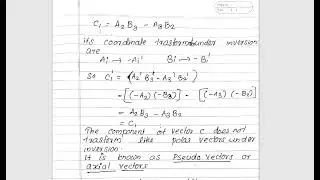 C₁ = A₂B₃ - A₃B₂
its coordinate trasform under inversion
are
Ai → -Ai' Bi → -Bi'
so C₁' = (A₂'B₃' - A₃'B₂')
= [(-A₂)(-B₃)] - [(-A₃)(-B₂)]
= A₂B₃ - A₃B₂
= C₁
The component of vector c does not
trasform like polar vectors under
inversion
It is known as Pseudo vectors or
axial vectors